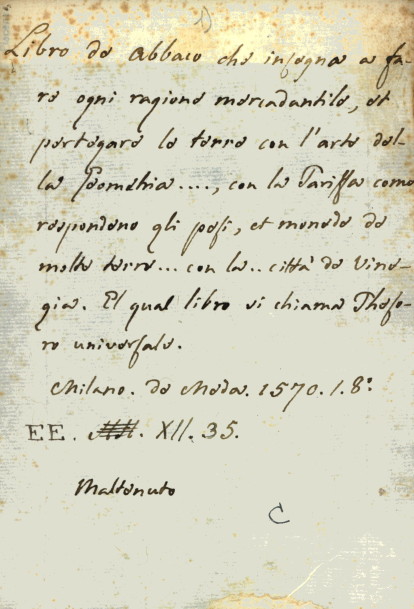 1)
Libro de abbaco che insegna a fa-
re ogni ragione mercadantile, et
pertegare le terre con l'arte del-
la Geometria...., con la Tariffa come
respondeno gli pesi, et monede de
molte terre... con la.. città de Vine-
gia. El qual libro si chiama Theso-
ro universale.
Milano. de Meda. 1570. 1. 8°
EE. XII. 35.
Maltenuto
C